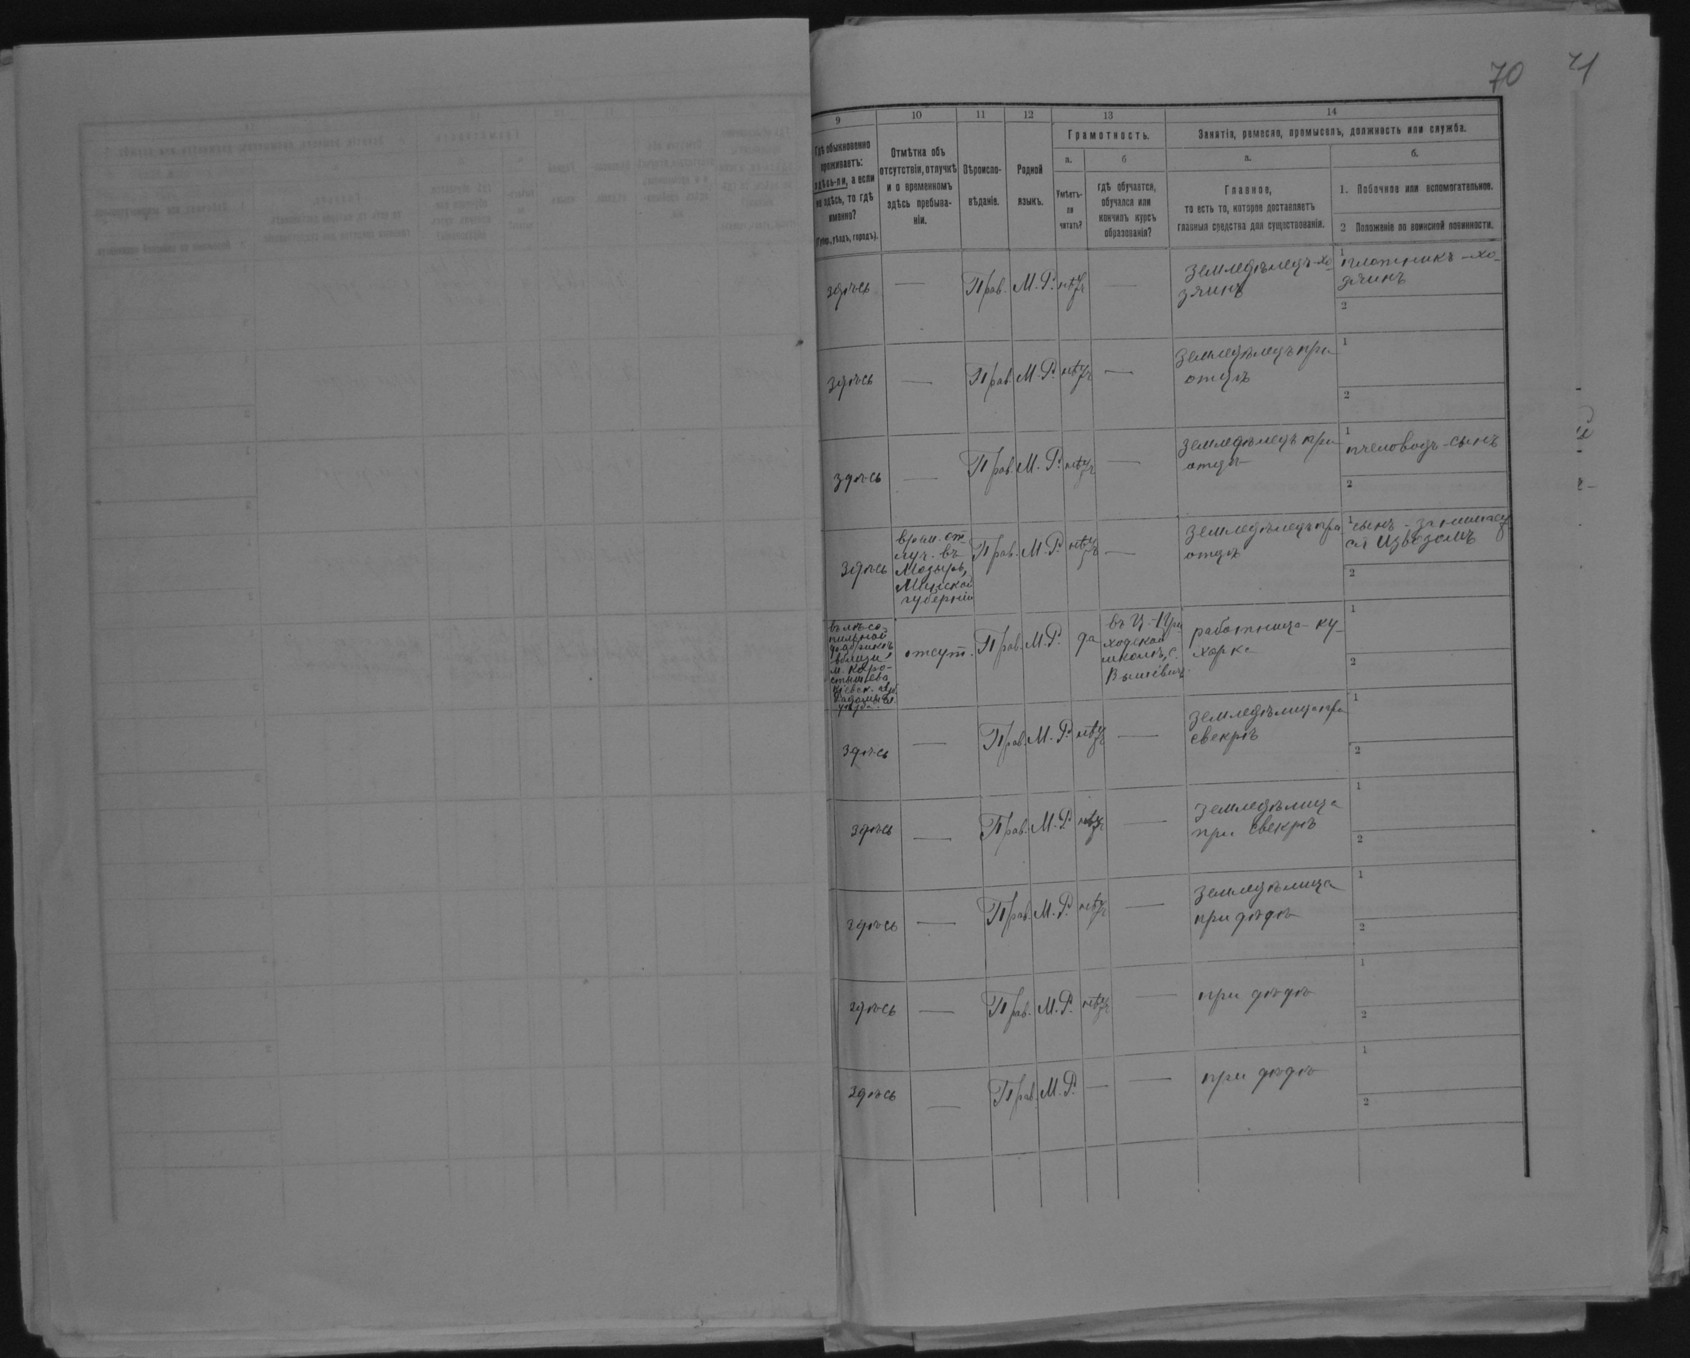 70 71
9 10 11 12 13 14
Грамотность. Занятіе, ремесло, промыселъ, должность или служба.
Гдѣ обыкновенно
проживаетъ:
здѣсь-ли, а если
не здѣсь, то гдѣ
именно?
(Губер., уѣздъ, городъ).
Отмѣтка объ
отсутствіи, отлучкѣ
и о временномъ
здѣсь пребыва-
ніи.
Вѣроиспо-
вѣданіе.
Родной
языкъ.
а.
Умѣетъ-
ли
читать?
б
гдѣ обучается,
обучался или
кончилъ курсъ
образованія?
а.
Главное,
то есть то, которое доставляетъ
главныя средства для существованія.
б.
1. Побочное или вспомогательное.
2 Положеніе по воинской повинности.
здѣсь — Прав. М. Р. нѣтъ — Земледѣлецъ-хо-
зяинъ
1 плотникъ-хо-
зяинъ
2
здѣсь — Прав. М. Р. нѣтъ — Земледѣлецъ при
отцѣ
1
2
здѣсь — Прав. М. Р. нѣтъ — Земледѣлецъ при
отцѣ
1 пчеловодъ-сынъ
2
здѣсь
врем. от-
луч. въ
Мозырь,
Минской
губерніи
Прав. М. Р. нѣтъ — Земледѣлецъ при
отцѣ
1 сынъ - занимает-
ся извозомъ
2
въ лѣсо-
пильной
фабрикѣ
вблизи
м. Коро-
стышева
Кіевск. губ.
Радомысл.
уѣзда.
отсут. Прав. М. Р. да
въ Ц.-При
ходской
школѣ, с.
Вышевичи
работница-ку-
харка
1
2
здѣсь — Прав. М. Р. нѣтъ — Земледѣлица при
свекрѣ
1
2
здѣсь — Прав. М. Р. нѣтъ — Земледѣлица
при свекрѣ
1
2
здѣсь — Прав. М. Р. нѣтъ — Земледѣлица
при дѣдѣ
1
2
здѣсь — Прав. М. Р. нѣтъ — при дѣдѣ
1
2
здѣсь — Прав. М. Р. — — при дѣдѣ
1
2